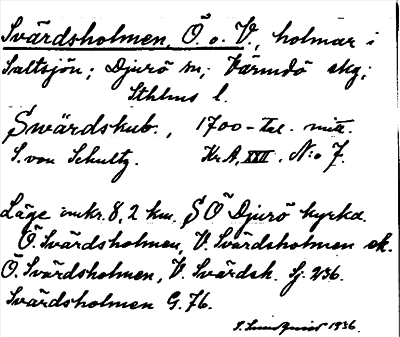 Svärdsholmen, Ö. o. V., holmar i
Saltsjön; Djurö sn; Värmdö skg;
Sthlms l.
Swärdskub., 1700-tal. mitt.
S. von Schultz. Kr.A. XXII. N:o 7.
Läge omkr. 8,2 km. SÖ Djurö kyrka.
Ö. Svärdsholmen, V. Svärdsholmen ek.
Ö. Svärdsholmen, V. Svärdsh. Sj. 236.
Svärdsholmen G. 76.
1936.